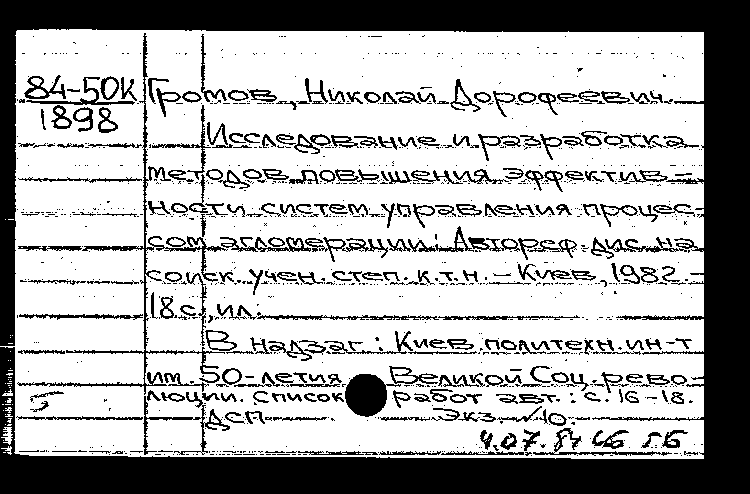 84-50К Громов, Николай Дорофеевич.
1898
Исследование и разработка
методов повышения эффектив-
ности систем управления процес-
сом агломерации: Автореф. дис. на
соиск. учен. степ. к.т.н. - Киев, 1982. -
18 с., ил.
В надзаг.: Киев. политехн. ин-т
им. 50-летия Великой Соц. рево-
люции. Список работ авт.: с. 16-18.
5
ДСП Экз. №10.
4.07.84